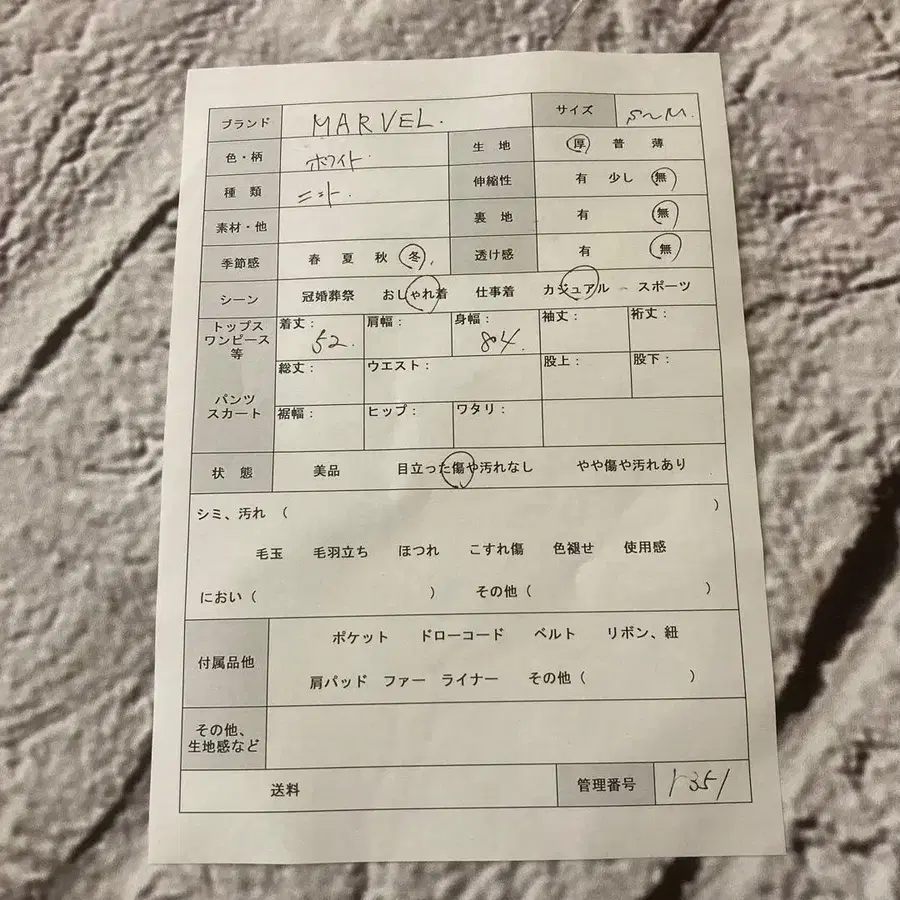 ブランド MARVEL. サイズ S~M.
色・柄 ホワイト. 生地 厚 普 薄
種類 ニット. 伸縮性 有 少し 無
素材・他 裏地 有 無
季節感 春 夏 秋 冬 透け感 有 無
シーン 冠婚葬祭 おしゃれ着 仕事着 カジュアル スポーツ
トップス
ワンピース
等
着丈: 52. 肩幅: 身幅: 84. 袖丈: 裄丈:
パンツ
スカート
総丈: ウエスト: 股上: 股下:
裾幅: ヒップ: ワタリ:
状態 美品 目立った傷や汚れなし やや傷や汚れあり
シミ、汚れ ( )
毛玉 毛羽立ち ほつれ こすれ傷 色褪せ 使用感
におい ( ) その他 ( )
付属品他 ポケット ドローコード ベルト リボン、紐
肩パッド ファー ライナー その他 ( )
その他、
生地感など
送料 管理番号 1351